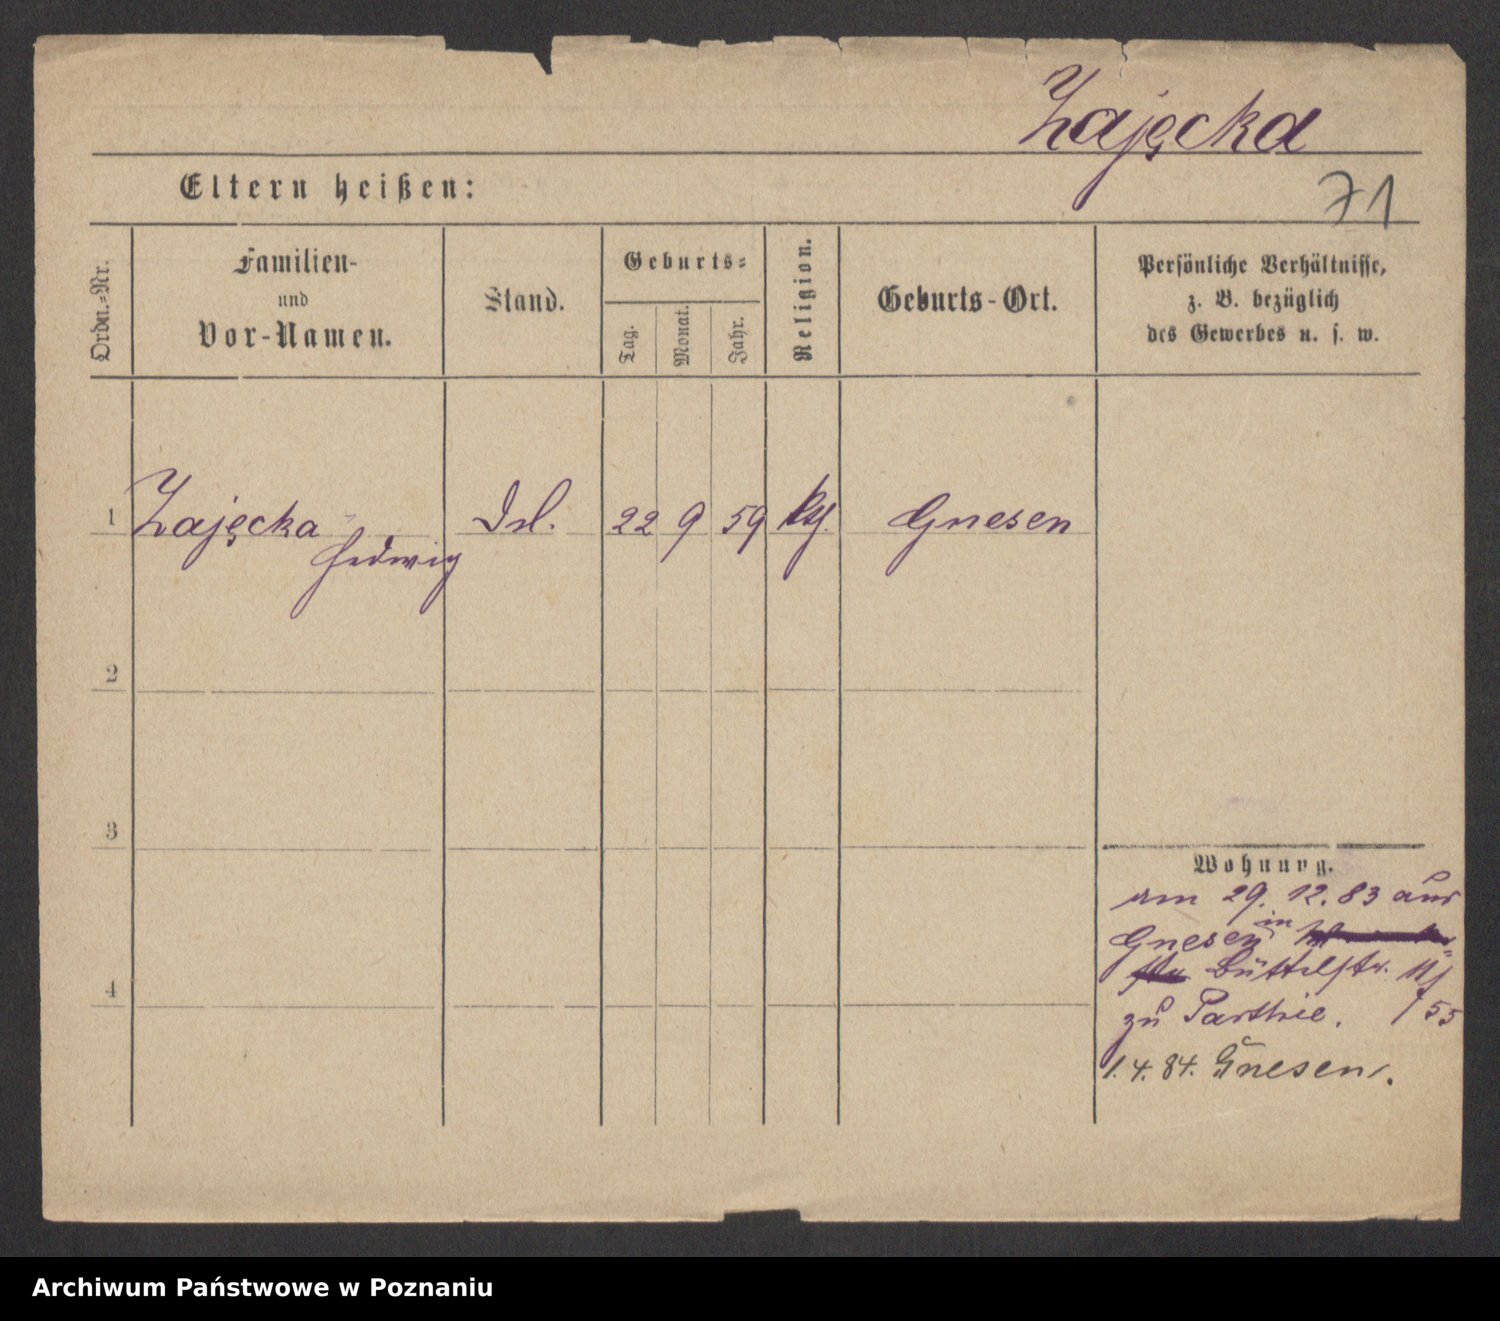 Zajęcka
Eltern heißen:
71
Ordn.-Nr.
Familien-
und
Vor-Namen.
Stand.
Geburts-
Tag.
Monat.
Jahr.
Religion.
Geburts-Ort.
Persönliche Verhältnisse,
z. B. bezüglich
des Gewerbes u. s. w.
1 Zajęcka 22 9 59 Gnesen
Hedwig
2
3
4
Wohnung.
am 29. 12. 83 aus
Gnesen in
Büttelstr.
zu Parthie. 55
1. 4. 84. Gnesen.
Archiwum Państwowe w Poznaniu